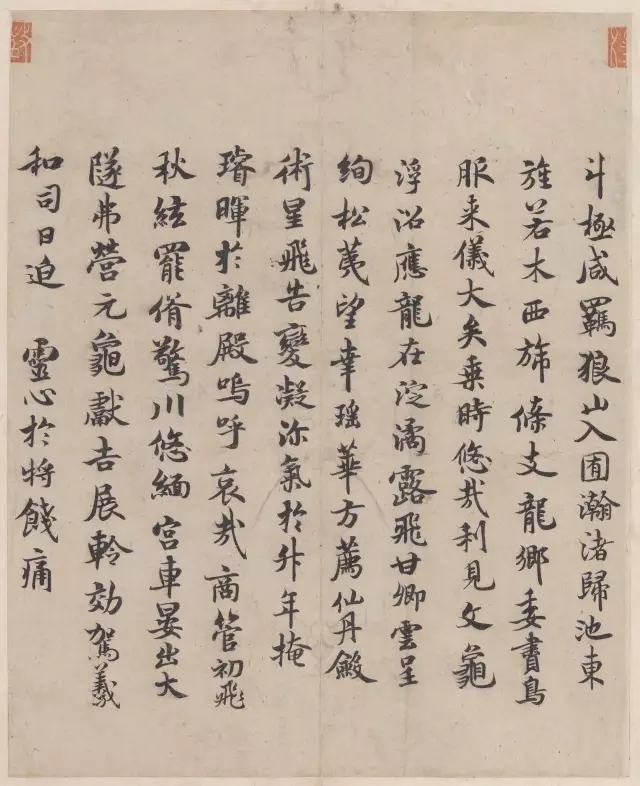 斗極咸羈狼山入囿瀚渚歸池東
旌若木西旆條支龍鄉委賮鳥
服来儀大矣乗時悠哉利見文龜
浮沼應龍在淀濡露飛甘卿雲呈
絢松荑望幸瑶華方薦仙丹斂
術星飛告變凝沴氣於升年掩
璿暉於離殿嗚呼哀哉商管初飛
秋絃罷脩驚川悠緬宮車晏出大
隧弗營元龜獻吉展軨効駕羲
和司日迫 靈心於将餞痛